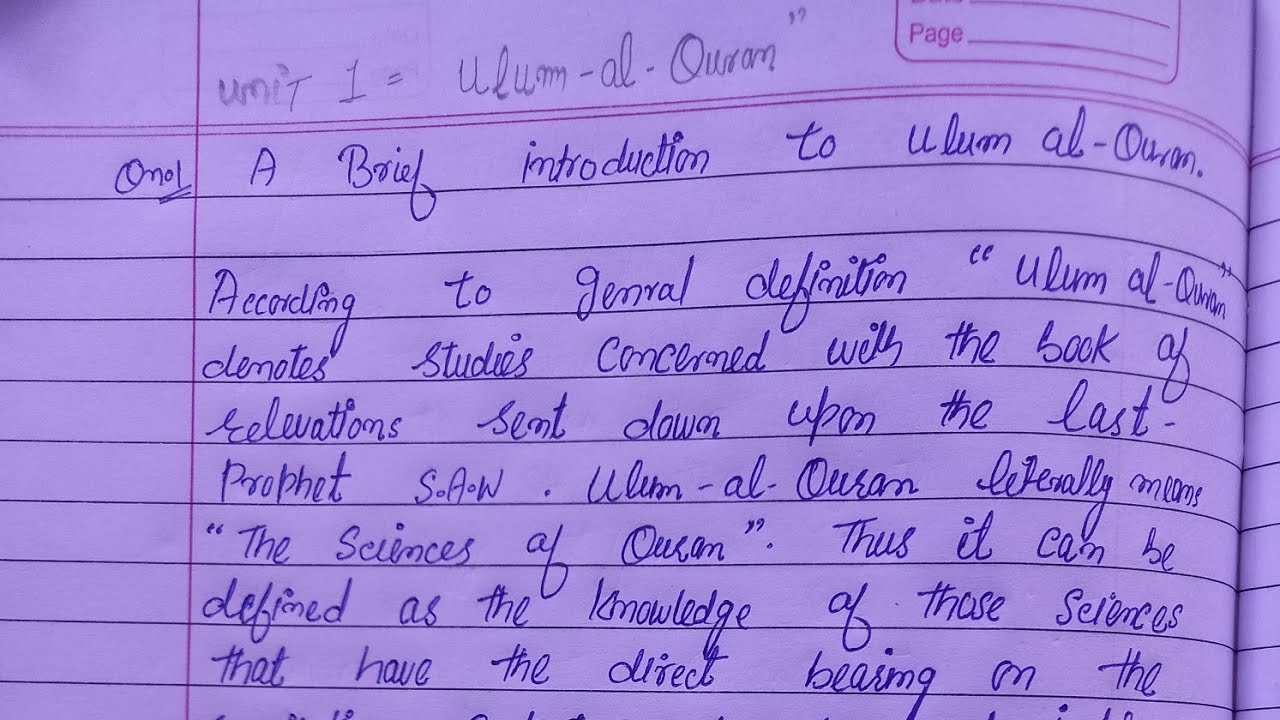 Page
unit 1 = Ulum-al-Quran"
Qno1 A Brief introduction to Ulum al-Quran.
According to genral definition "Ulum al-Quran"
denotes studies concerned with the book of
relevations sent down upon the last-
Prophet S.A.W. Ulum-al-Quran leterally means
"The Sciences of Quran". Thus it can be
defined as the knowledge of those sciences
that have the direct bearing on the